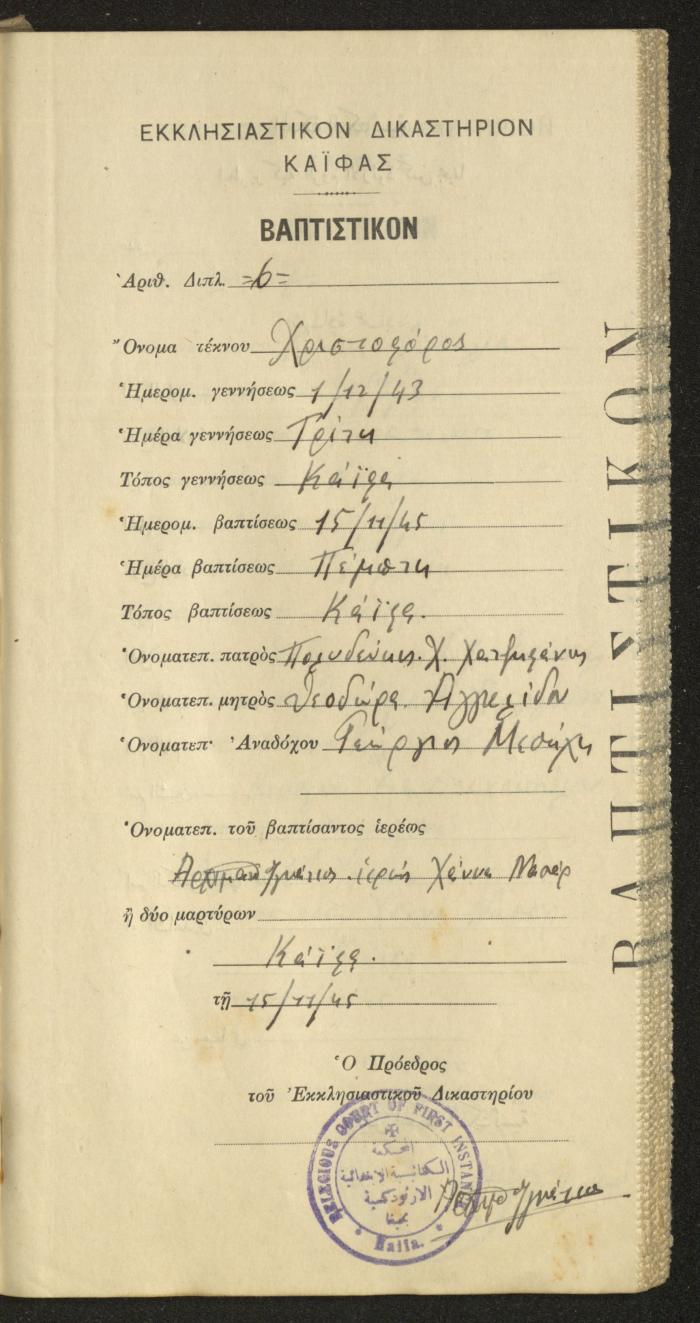 ΕΚΚΛΗΣΙΑΣΤΙΚΟΝ ΔΙΚΑΣΤΗΡΙΟΝ
ΚΑΪΦΑΣ
ΒΑΠΤΙΣΤΙΚΟΝ
Ἀριθ. Διπλ. =6=
Ὄνομα τέκνου Χριστοφόρος
Ἡμερομ. γεννήσεως 1/12/43
Ἡμέρα γεννήσεως Τρίτη
Τόπος γεννήσεως Κάϊφα
Ἡμερομ. βαπτίσεως 15/11/45
Ἡμέρα βαπτίσεως Πέμπτη
Τόπος βαπτίσεως Κάϊφα.
Ὀνοματεπ. πατρὸς Πολυδεύκης Χ.
Ὀνοματεπ. μητρὸς Θεοδώρα
Ὀνοματεπ· Ἀναδόχου Γεώργιος
Ὀνοματεπ. τοῦ βαπτίσαντος ἱερέως
ἱερεύς Χάννα
ἢ δύο μαρτύρων
Κάϊφα.
τῇ 15/11/45
Ὁ Πρόεδρος
τοῦ Ἐκκλησιαστικοῦ Δικαστηρίου
RELIGIOUS COURT OF FIRST INSTANCE
المحكمة
الكنائسية الابتدائية
الارثوذكسية
بحيفا
Haifa.
ΒΑΠΤΙΣΤΙΚΟΝ